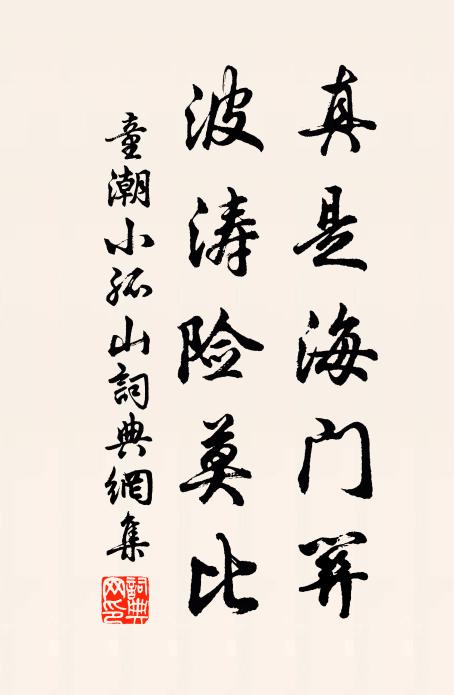 真是海门关
波涛险莫比
童潮小孤山詞典網集
詞典网印